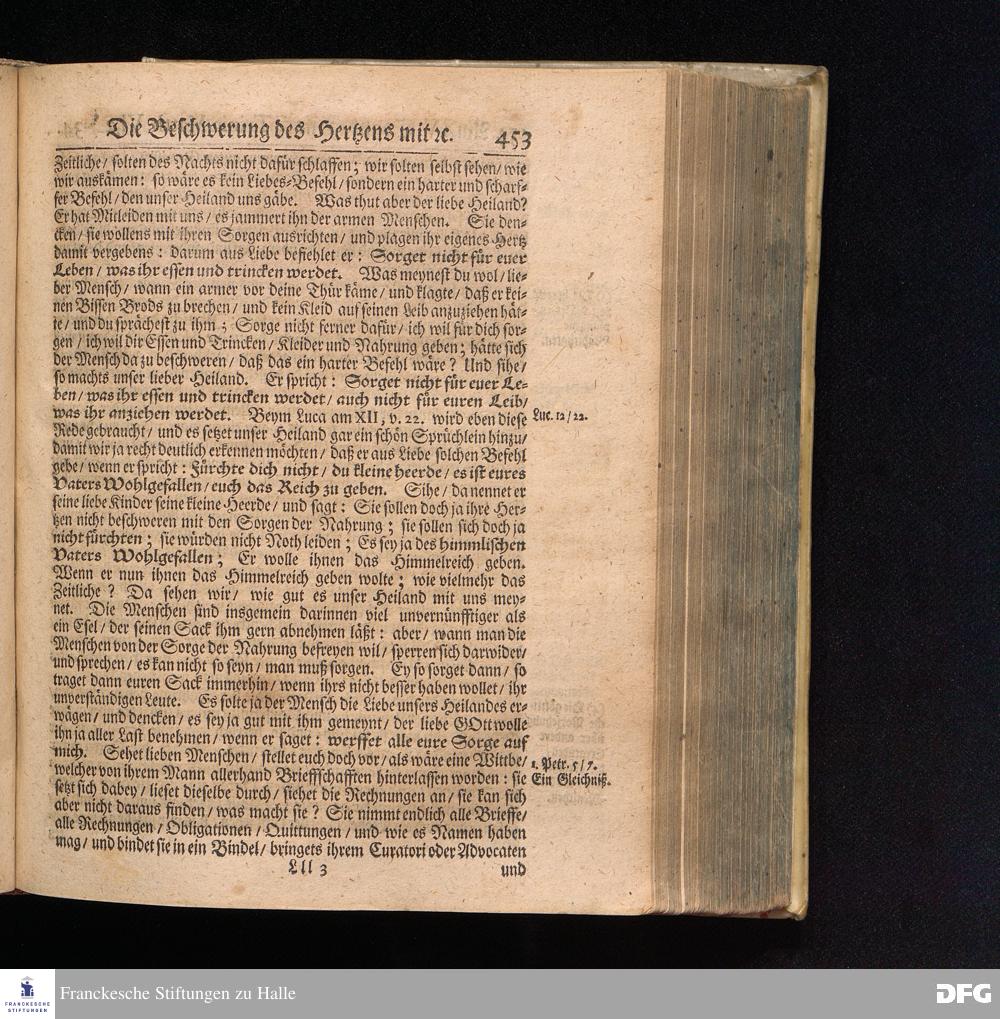 Die Beschwerung des Hertzens mit ꝛc. 453
Zeitliche / solten des Nachts nicht dafür schlaffen; wir solten selbst sehen / wie
wir auskämen: so wäre es kein Liebes-Befehl / sondern ein harter und scharf-
fer Befehl / den unser Heiland uns gäbe. Was thut aber der liebe Heiland?
Er hat Mitleiden mit uns / es jammert ihn der armen Menschen. Sie den-
cken / sie wollens mit ihren Sorgen ausrichten / und plagen ihr eigenes Hertz
damit vergebens: darum aus Liebe befiehlet er: Sorget nicht für euer
Leben / was ihr essen und trincken werdet. Was meynest du wol / lie-
ber Mensch / wann ein armer vor deine Thür käme / und klagte / daß er kei-
nen Bissen Brods zu brechen / und kein Kleid auf seinen Leib anzuziehen hät-
te / und du sprächest zu ihm; Sorge nicht ferner dafür / ich wil für dich sor-
gen / ich wil dir Essen und Trincken / Kleider und Nahrung geben; hätte sich
der Mensch da zu beschweren / daß das ein harter Befehl wäre? Und sihe /
so machts unser lieber Heiland. Er spricht: Sorget nicht für euer Le-
ben / was ihr essen und trincken werdet / auch nicht für euren Leib /
was ihr anziehen werdet. Beym Luca am XII, v. 22. wird eben diese
Luc. 12 / 22.
Rede gebraucht / und es setzet unser Heiland gar ein schön Sprüchlein hinzu /
damit wir ja recht deutlich erkennen möchten / daß er aus Liebe solchen Befehl
gebe / wenn er spricht: Fürchte dich nicht / du kleine heerde / es ist eures
Vaters Wohlgefallen / euch das Reich zu geben. Sihe / da nennet er
seine liebe Kinder seine kleine Heerde / und sagt: Sie sollen doch ja ihre Her-
tzen nicht beschweren mit den Sorgen der Nahrung; sie sollen sich doch ja
nicht fürchten; sie würden nicht Noth leiden; Es sey ja des himmlischen
Vaters Wohlgefallen; Er wolle ihnen das Himmelreich geben.
Wenn er nun ihnen das Himmelreich geben wolte; wie vielmehr das
Zeitliche? Da sehen wir / wie gut es unser Heiland mit uns mey-
net. Die Menschen sind insgemein darinnen viel unvernünfftiger als
ein Esel / der seinen Sack ihm gern abnehmen läßt: aber / wann man die
Menschen von der Sorge der Nahrung befreyen wil / sperren sich darwider /
und sprechen / es kan nicht so seyn / man muß sorgen. Ey so sorget dann / so
traget dann euren Sack immerhin / wenn ihrs nicht besser haben wollet / ihr
unverständigen Leute. Es solte ja der Mensch die Liebe unsers Heilandes er-
wägen / und dencken / es sey ja gut mit ihm gemeynt / der liebe GOtt wolle
ihn ja aller Last benehmen / wenn er saget: werffet alle eure Sorge auf
mich. Sehet lieben Menschen / stellet euch doch vor / als wäre eine Wittbe /
1. Petr. 5 / 7.
welcher von ihrem Mann allerhand Brieffschafften hinterlassen worden: sie
Ein Gleichniß.
setzt sich dabey / lieset dieselbe durch / siehet die Rechnungen an / sie kan sich
aber nicht daraus finden / was macht sie? Sie nimmt endlich alle Brieffe /
alle Rechnungen / Obligationen / Quittungen / und wie es Namen haben
mag / und bindet sie in ein Bindel / bringets ihrem Curatori oder Advocaten
Lll 3 und
FRANCKESCHE
STIFTUNGEN
Franckesche Stiftungen zu Halle
DFG